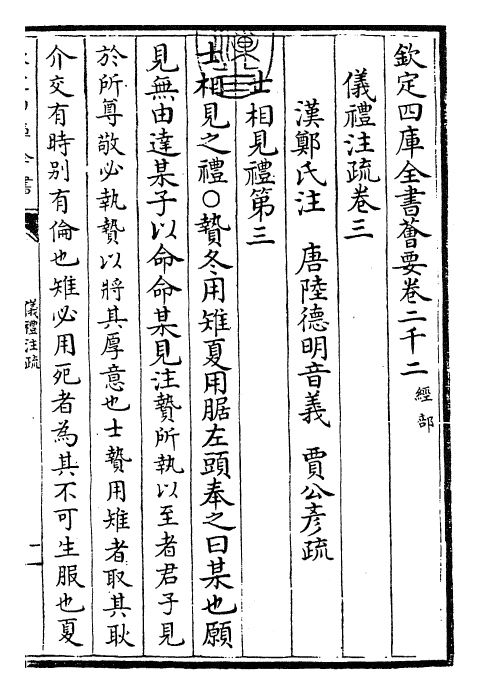 欽定四庫全書薈要卷二千二 經部
儀禮注疏卷三
漢鄭氏注 唐陸德明音義 賈公彥疏
士相見禮第三
士相見之禮○贄冬用雉夏用腒左頭奉之曰某也願
見無由達某子以命命某見注贄所執以至者君子見
於所尊敬必執贄以將其厚意也士贄用雉者取其耿
介交有時别有倫也雉必用死者為其不可生服也夏
儀禮注疏
一